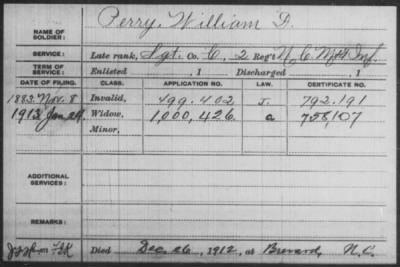 Perry, William D.
NAME OF SOLDIER:
SERVICE: Late rank, Sgt. Co. C, 2 Reg't N.C. Mtd Inf.
TERM OF SERVICE: Enlisted , 1 Discharged , 1
DATE OF FILING. CLASS. APPLICATION NO. LAW. CERTIFICATE NO.
1883. Nov. 8 Invalid, 499.402 J. 792.191
1913 Jan 24. Widow, 1,000,426. a 758,107
Minor,
ADDITIONAL SERVICES:
REMARKS:
Died Dec 26, 1912, at Brevard, N.C.